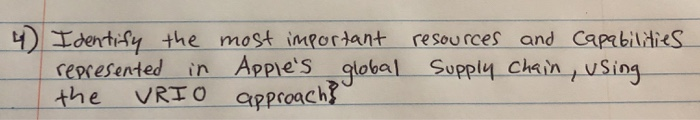 4) Identify the most important resources and capabilities
represented in Apple's global supply chain, using
the VRIO approach?